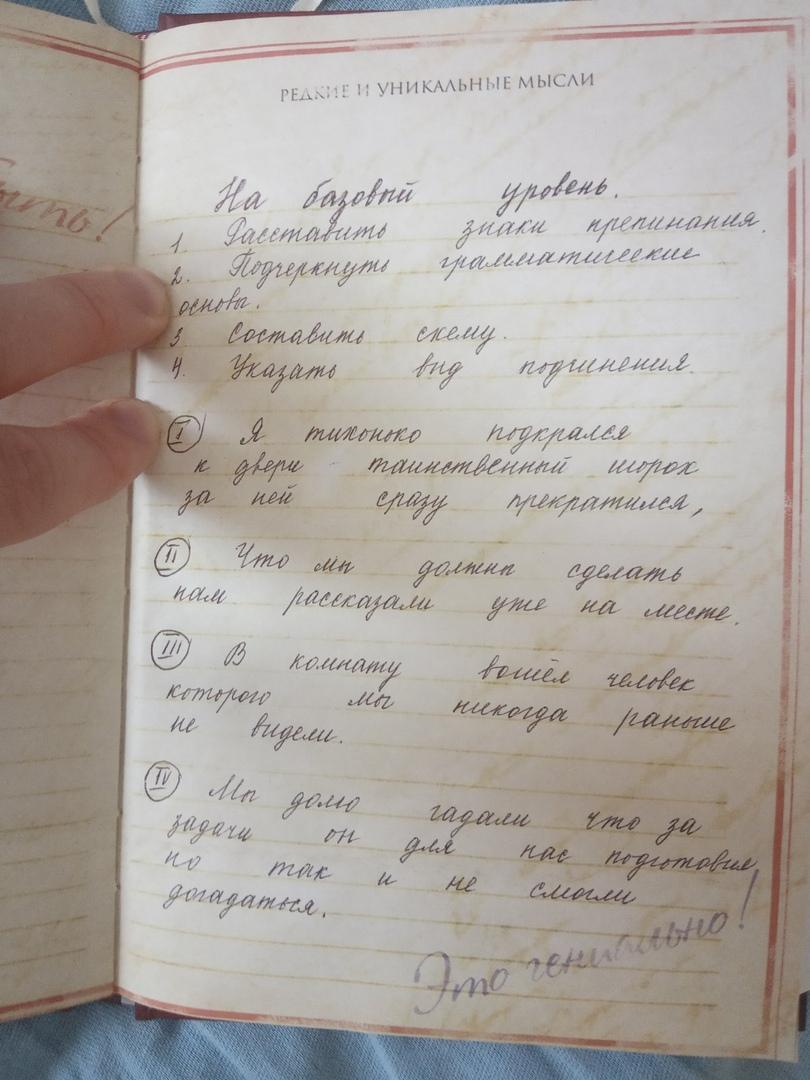 ыть!
РЕДКИЕ И УНИКАЛЬНЫЕ МЫСЛИ
На базовый уровень.
1 Расставить знаки препинания.
2. Подчеркнуть грамматические
основы.
3 Составить схему.
4. Указать вид подчинения.
I Я тихонько подкрался
к двери таинственный шорох
за ней сразу прекратился,
II Что мы должны сделать
нам рассказали уже на месте.
III В комнату вошёл человек
которого мы никогда раньше
не видели.
IV Мы долго гадали что за
задачи он для нас подготовил
но так и не смогли
догадаться.
Это гениально!